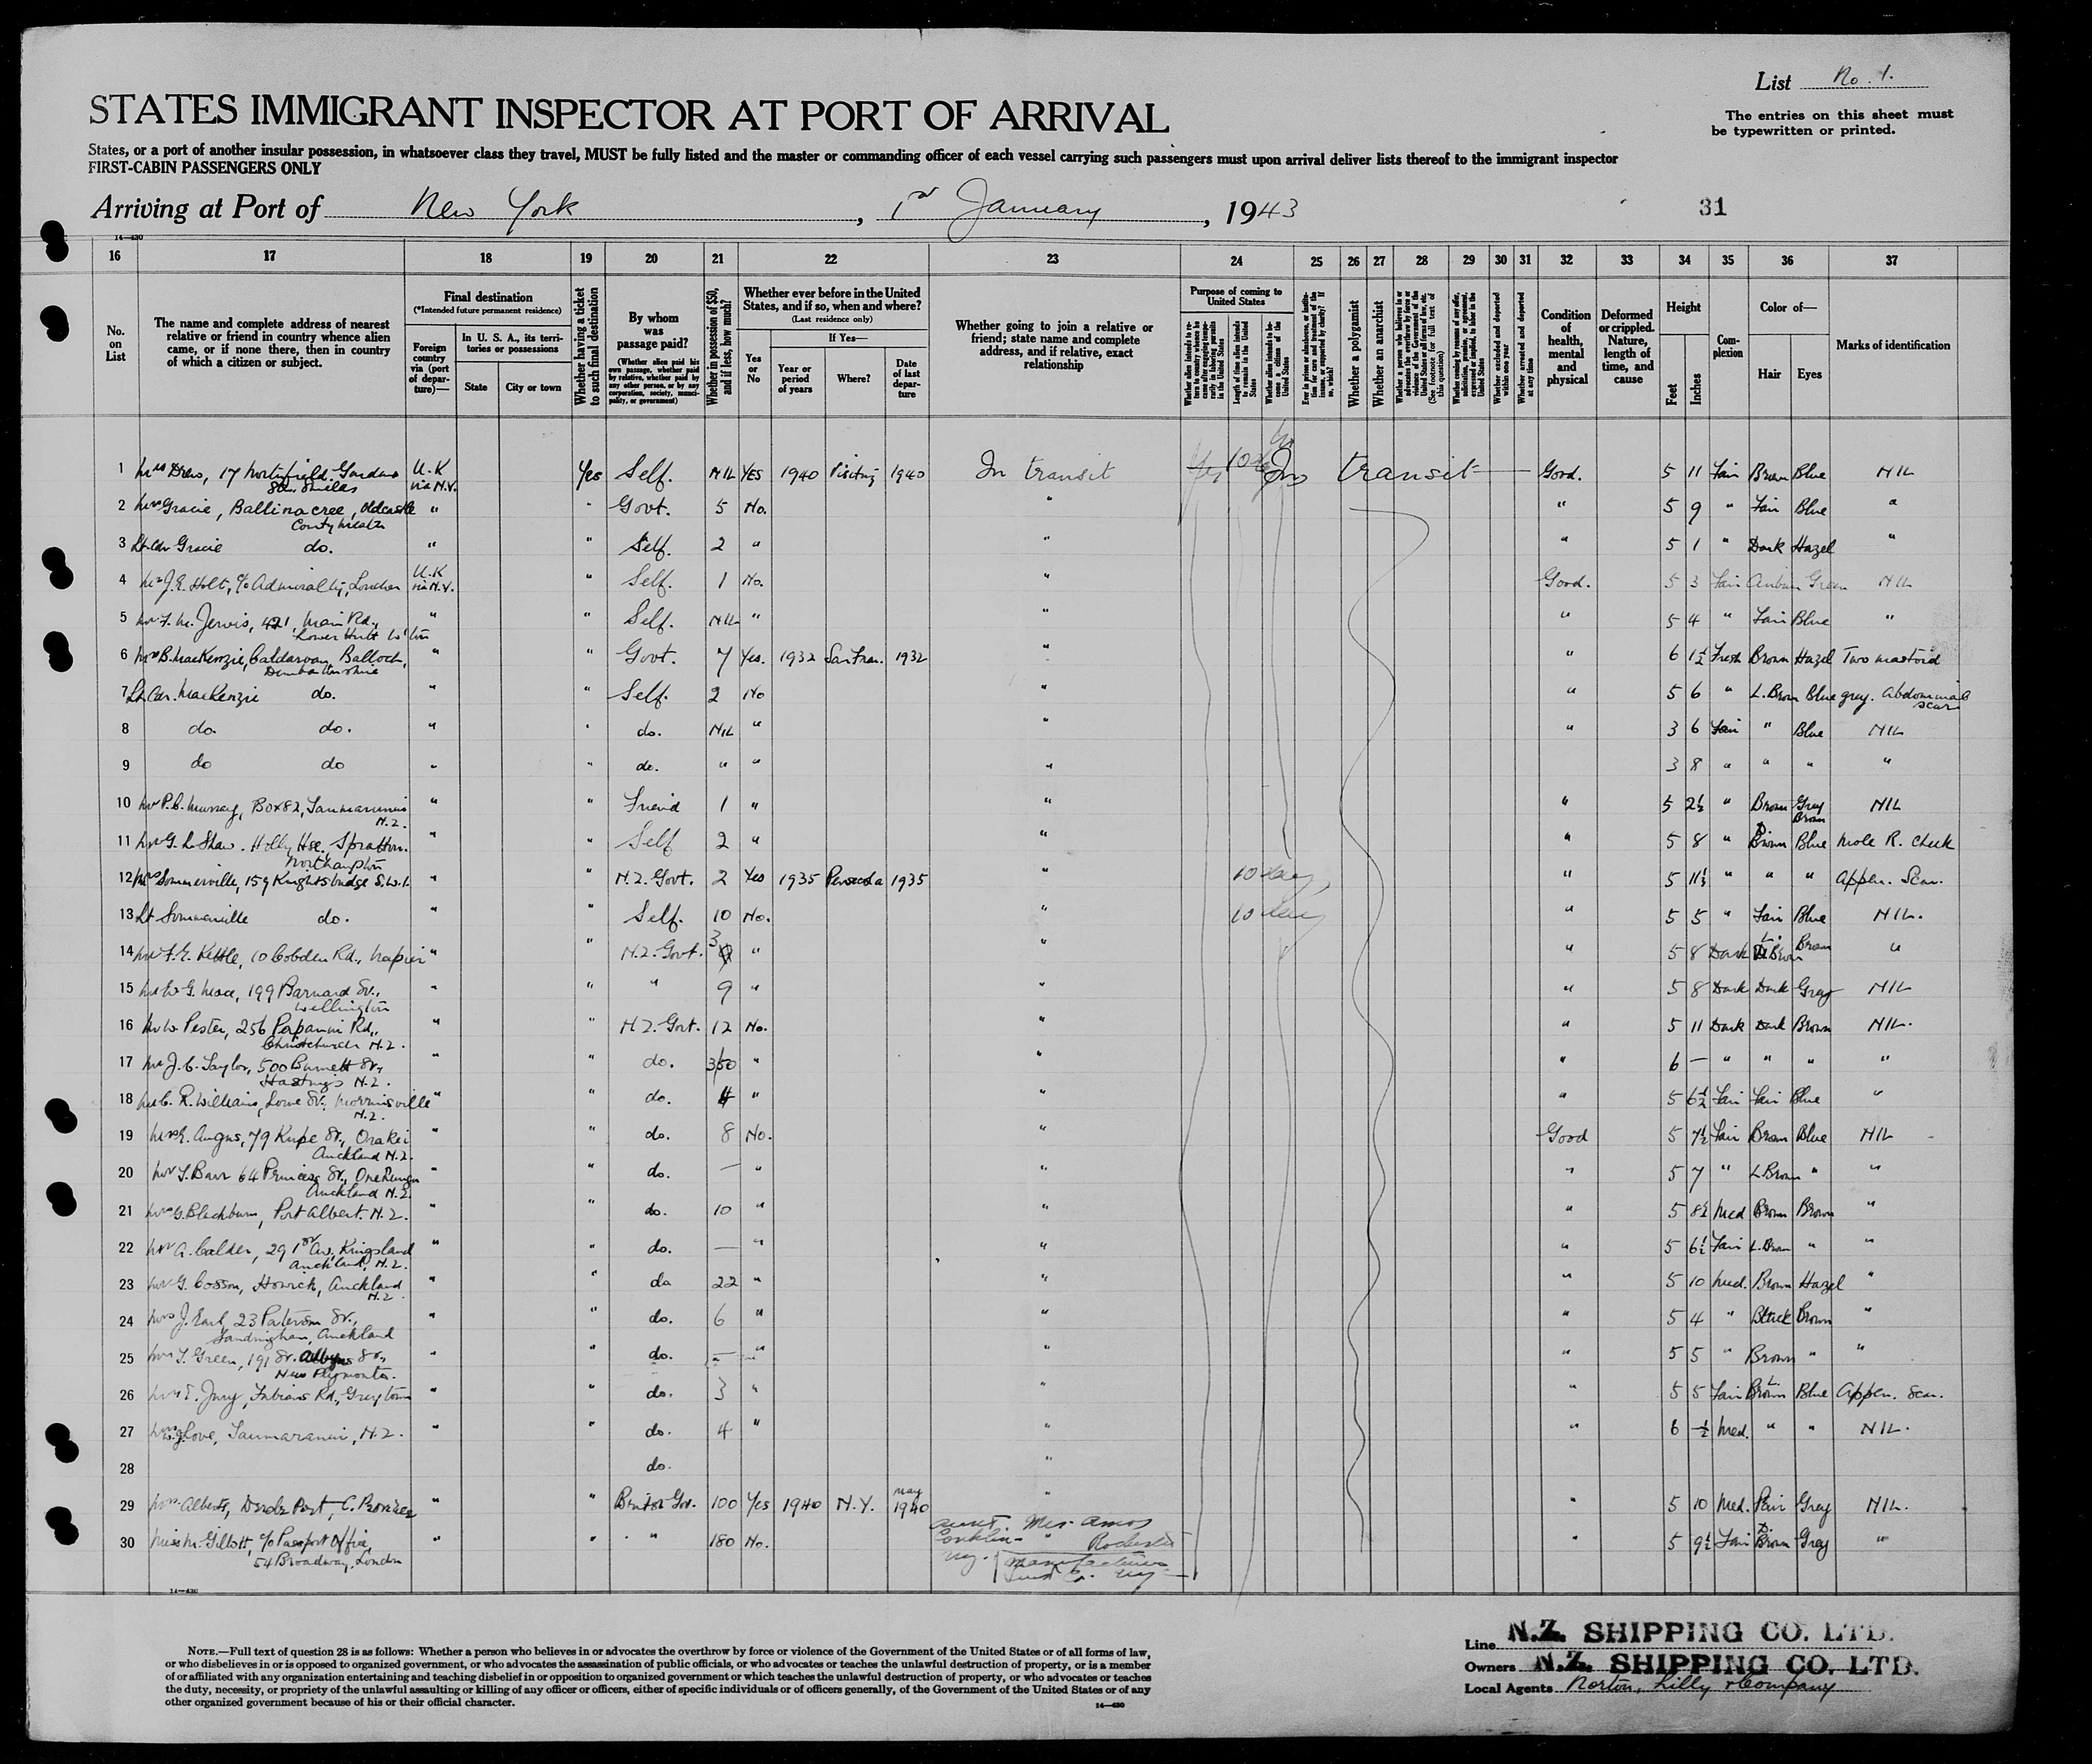 List No. 1.
STATES IMMIGRANT INSPECTOR AT PORT OF ARRIVAL
The entries on this sheet must
be typewritten or printed.
States, or a port of another insular possession, in whatsoever class they travel, MUST be fully listed and the master or commanding officer of each vessel carrying such passengers must upon arrival deliver lists thereof to the immigrant inspector
FIRST-CABIN PASSENGERS ONLY
Arriving at Port of New York, 1st January, 1943
31
14—430
16 17 18 19 20 21 22 23 24 25 26 27 28 29 30 31 32 33 34 35 36 37
No. on List
The name and complete address of nearest relative or friend in country whence alien came, or if none there, then in country of which a citizen or subject.
Final destination
(*Intended future permanent residence)
Foreign country via (port of departure)—
In U. S. A., its territories or possessions
State
City or town
Whether having a ticket to such final destination
By whom was passage paid?
(Whether alien paid his own passage, whether paid by relative, whether paid by any other person, or by any corporation, society, municipality, or government)
Whether in possession of $50, and if less, how much?
Whether ever before in the United States, and if so, when and where?
(Last residence only)
Yes or No
If Yes—
Year or period of years
Where?
Date of last departure
Whether going to join a relative or friend; state name and complete address, and if relative, exact relationship
Purpose of coming to United States
Whether a polygamist
Whether an anarchist
Condition of health, mental and physical
Deformed or crippled. Nature, length of time, and cause
Height
Feet
Inches
Complexion
Color of—
Hair
Eyes
Marks of identification
1 Mrs Drew, 17 Gardens U.K via N.Y. Yes Self. NIL YES 1940 Visiting 1940 In transit In transit Good. 5 11 Fair Brown Blue NIL
2 Mrs Gracie, Ballinacree, Oldcastle County Meath " " Govt. 5 No. " " 5 9 " Fair Blue "
3 Lt. Cdr Gracie do. " " Self. 2 " " " 5 1 " Dark Hazel "
4 Mr J.E. Holt, c/o Admiralty, London U.K via N.Y. " Self. 1 No. " Good. 5 3 Fair Auburn Green NIL
5 Mr F. M. Jervis, 421, Main Rd., Lower Hutt " " Self. NIL " " " 5 4 " Fair Blue "
6 Mrs B. MacKenzie, Caldarvan, Balloch, Dumbartonshire " " Govt. 7 Yes. 1932 San Fran. 1932 " " 6 1½ Fresh Brown Hazel Two mastoid
7 Lt. Cdr. MacKenzie do. " " Self. 2 No " " 5 6 " L. Brown Blue grey. Abdominal scar
8 do. do. " " do. NIL " " " 3 6 Fair " Blue NIL
9 do do " " do. " " " " 3 8 " " " "
10 Mr P.C. Murray, Box 82, Taumarunui N.Z. " " Friend 1 " " " 5 2½ " Brown Grey Brown NIL
11 Mr G. L. Shaw. Holly Hse. Spratton. Northampton " " Self 2 " " " 5 8 " D. Brown Blue Mole R. Cheek
12 Mrs Sommerville, 159 Knightsbridge S.W.1. " " N.Z. Govt. 2 Yes 1935 Pensacola 1935 " 10 days " 5 11½ " " " Appen. Scar.
13 Lt Sommerville do. " " Self. 10 No. " 10 days " 5 5 " Fair Blue NIL.
14 Mr F. E. Kettle, 10 Cobden Rd., Napier " " N.Z. Govt. 3 " " " 5 8 Dark L. Brown Brown "
15 G. Mace, 199 Barnard St., Wellington " " " 9 " " " 5 8 Dark Dark Grey NIL
16 Mr W. Pester, 256 Papanui Rd., Christchurch N.Z. " " N.Z. Govt. 12 No. " " 5 11 Dark Dark Brown NIL.
17 Mr J. C. Taylor, 500 Burnett St., Hastings N.Z. " " do. 3/50 " " " 6 — " " " "
18 C. R. Williams, Lowe St. Morrinsville N.Z. " " do. 4 " " " 5 6½ Fair Fair Blue "
19 Mrs E. Angus, 79 Kupe St., Orakei Auckland N.Z. " " do. 8 No. " Good 5 7½ Fair Brown Blue NIL
20 Mr T. Barr 64 Princess St., Onehunga Auckland N.Z. " " do. — " " " 5 7 " L. Brown " "
21 Mrs G. Blackburn, Port Albert. N.Z. " " do. 10 " " " 5 8½ Med Brown Brown "
22 Mr A. Calder, 29 1st Av., Kingsland Auckland, N.Z. " " do. — " " " 5 6½ Fair L. Brown " "
23 Mr G. Cosson, Howick, Auckland N.Z. " " do 22 " " " 5 10 Med. Brown Hazel "
24 Mrs J. Earl, 23 Paterson St., Sandringham, Auckland " " do. 6 " " " 5 4 " Black Brown "
25 Mrs T. Green, 191 St. Aubyns St., New Plymouth. " " do. — " " " 5 5 " Brown " "
26 Mrs E. Jury, Fabians Rd., Greytown " " do. 3 " " " 5 5 Fair L. Brown Blue Appen. Scar.
27 Mrs W.J. Love, Taumarunui, N.Z. " " do. 4 " " " 6 ½ Med. " " NIL.
28 do. "
29 Mrs. Alberts, C. Province " " British Gov. 100 Yes 1940 N.Y. May 1940 " " 5 10 Med. Fair Grey NIL.
30 Miss M. Gilbott, c/o Passport Office, 54 Broadway, London " " " " 180 No. Aunt Mrs. Amos Conklin Rochester N.Y. Manufacturers Trust Co. N.Y. " 5 9½ Fair D. Brown Grey "
14—430
NOTE.—Full text of question 28 is as follows: Whether a person who believes in or advocates the overthrow by force or violence of the Government of the United States or of all forms of law,
or who disbelieves in or is opposed to organized government, or who advocates the assassination of public officials, or who advocates or teaches the unlawful destruction of property, or is a member
of or affiliated with any organization entertaining and teaching disbelief in or opposition to organized government or which teaches the unlawful destruction of property, or who advocates or teaches
the duty, necessity, or propriety of the unlawful assaulting or killing of any officer or officers, either of specific individuals or of officers generally, of the Government of the United States or of any
other organized government because of his or their official character.
14—430
Line N.Z. SHIPPING CO. LTD.
Owners N.Z. SHIPPING CO. LTD.
Local Agents Norton, Lilly & Company